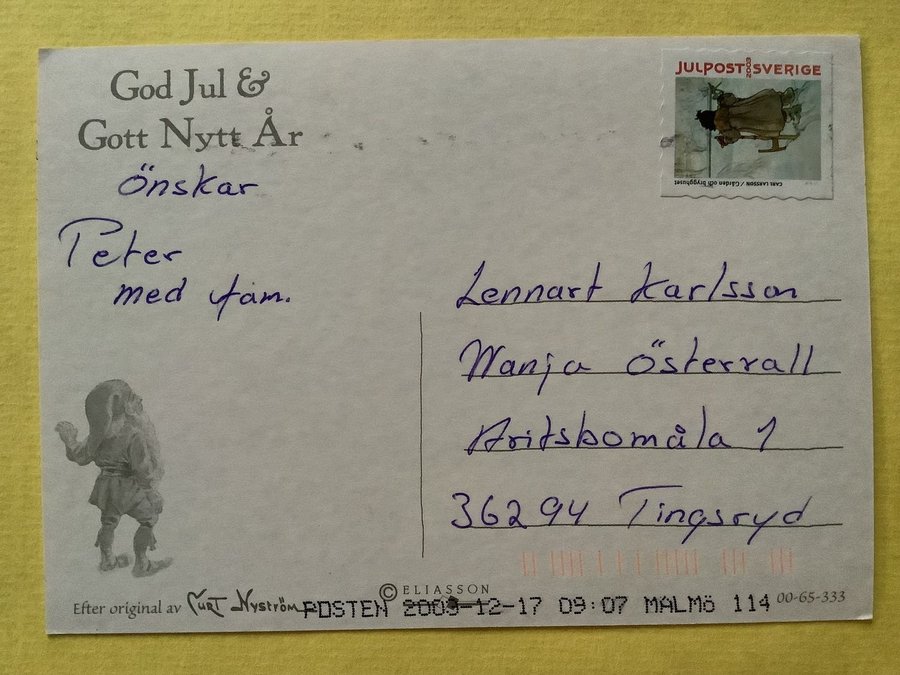 God Jul &
Gott Nytt År
önskar
Peter
med fam.
JULPOST 2003 SVERIGE
CARL LARSSON / Gården och brygghuset
Lennart Karlsson
Wanja Österrall
Aritsbomåla 1
36294 Tingsryd
© ELIASSON
Efter original av CURT NYSTRÖM
POSTEN 2003-12-17 09:07 MALMö 114
00-65-333